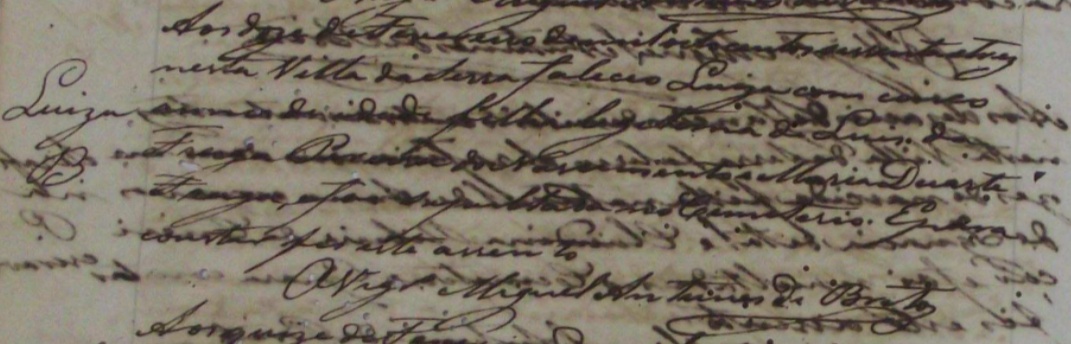 Aos doze de Fevereiro de mil oito centos sessenta e tres
nesta Villa da Serra faleceo Luiza com cinco
Luiza
annos de idade filha legitima de Luis da
B
França do Nascimento e Maria Duarte
e foi sepultada no Cemiterio. E para
constar fiz este assento
O Vigr.o Miguel Antunes de Brito
Aos quinze de